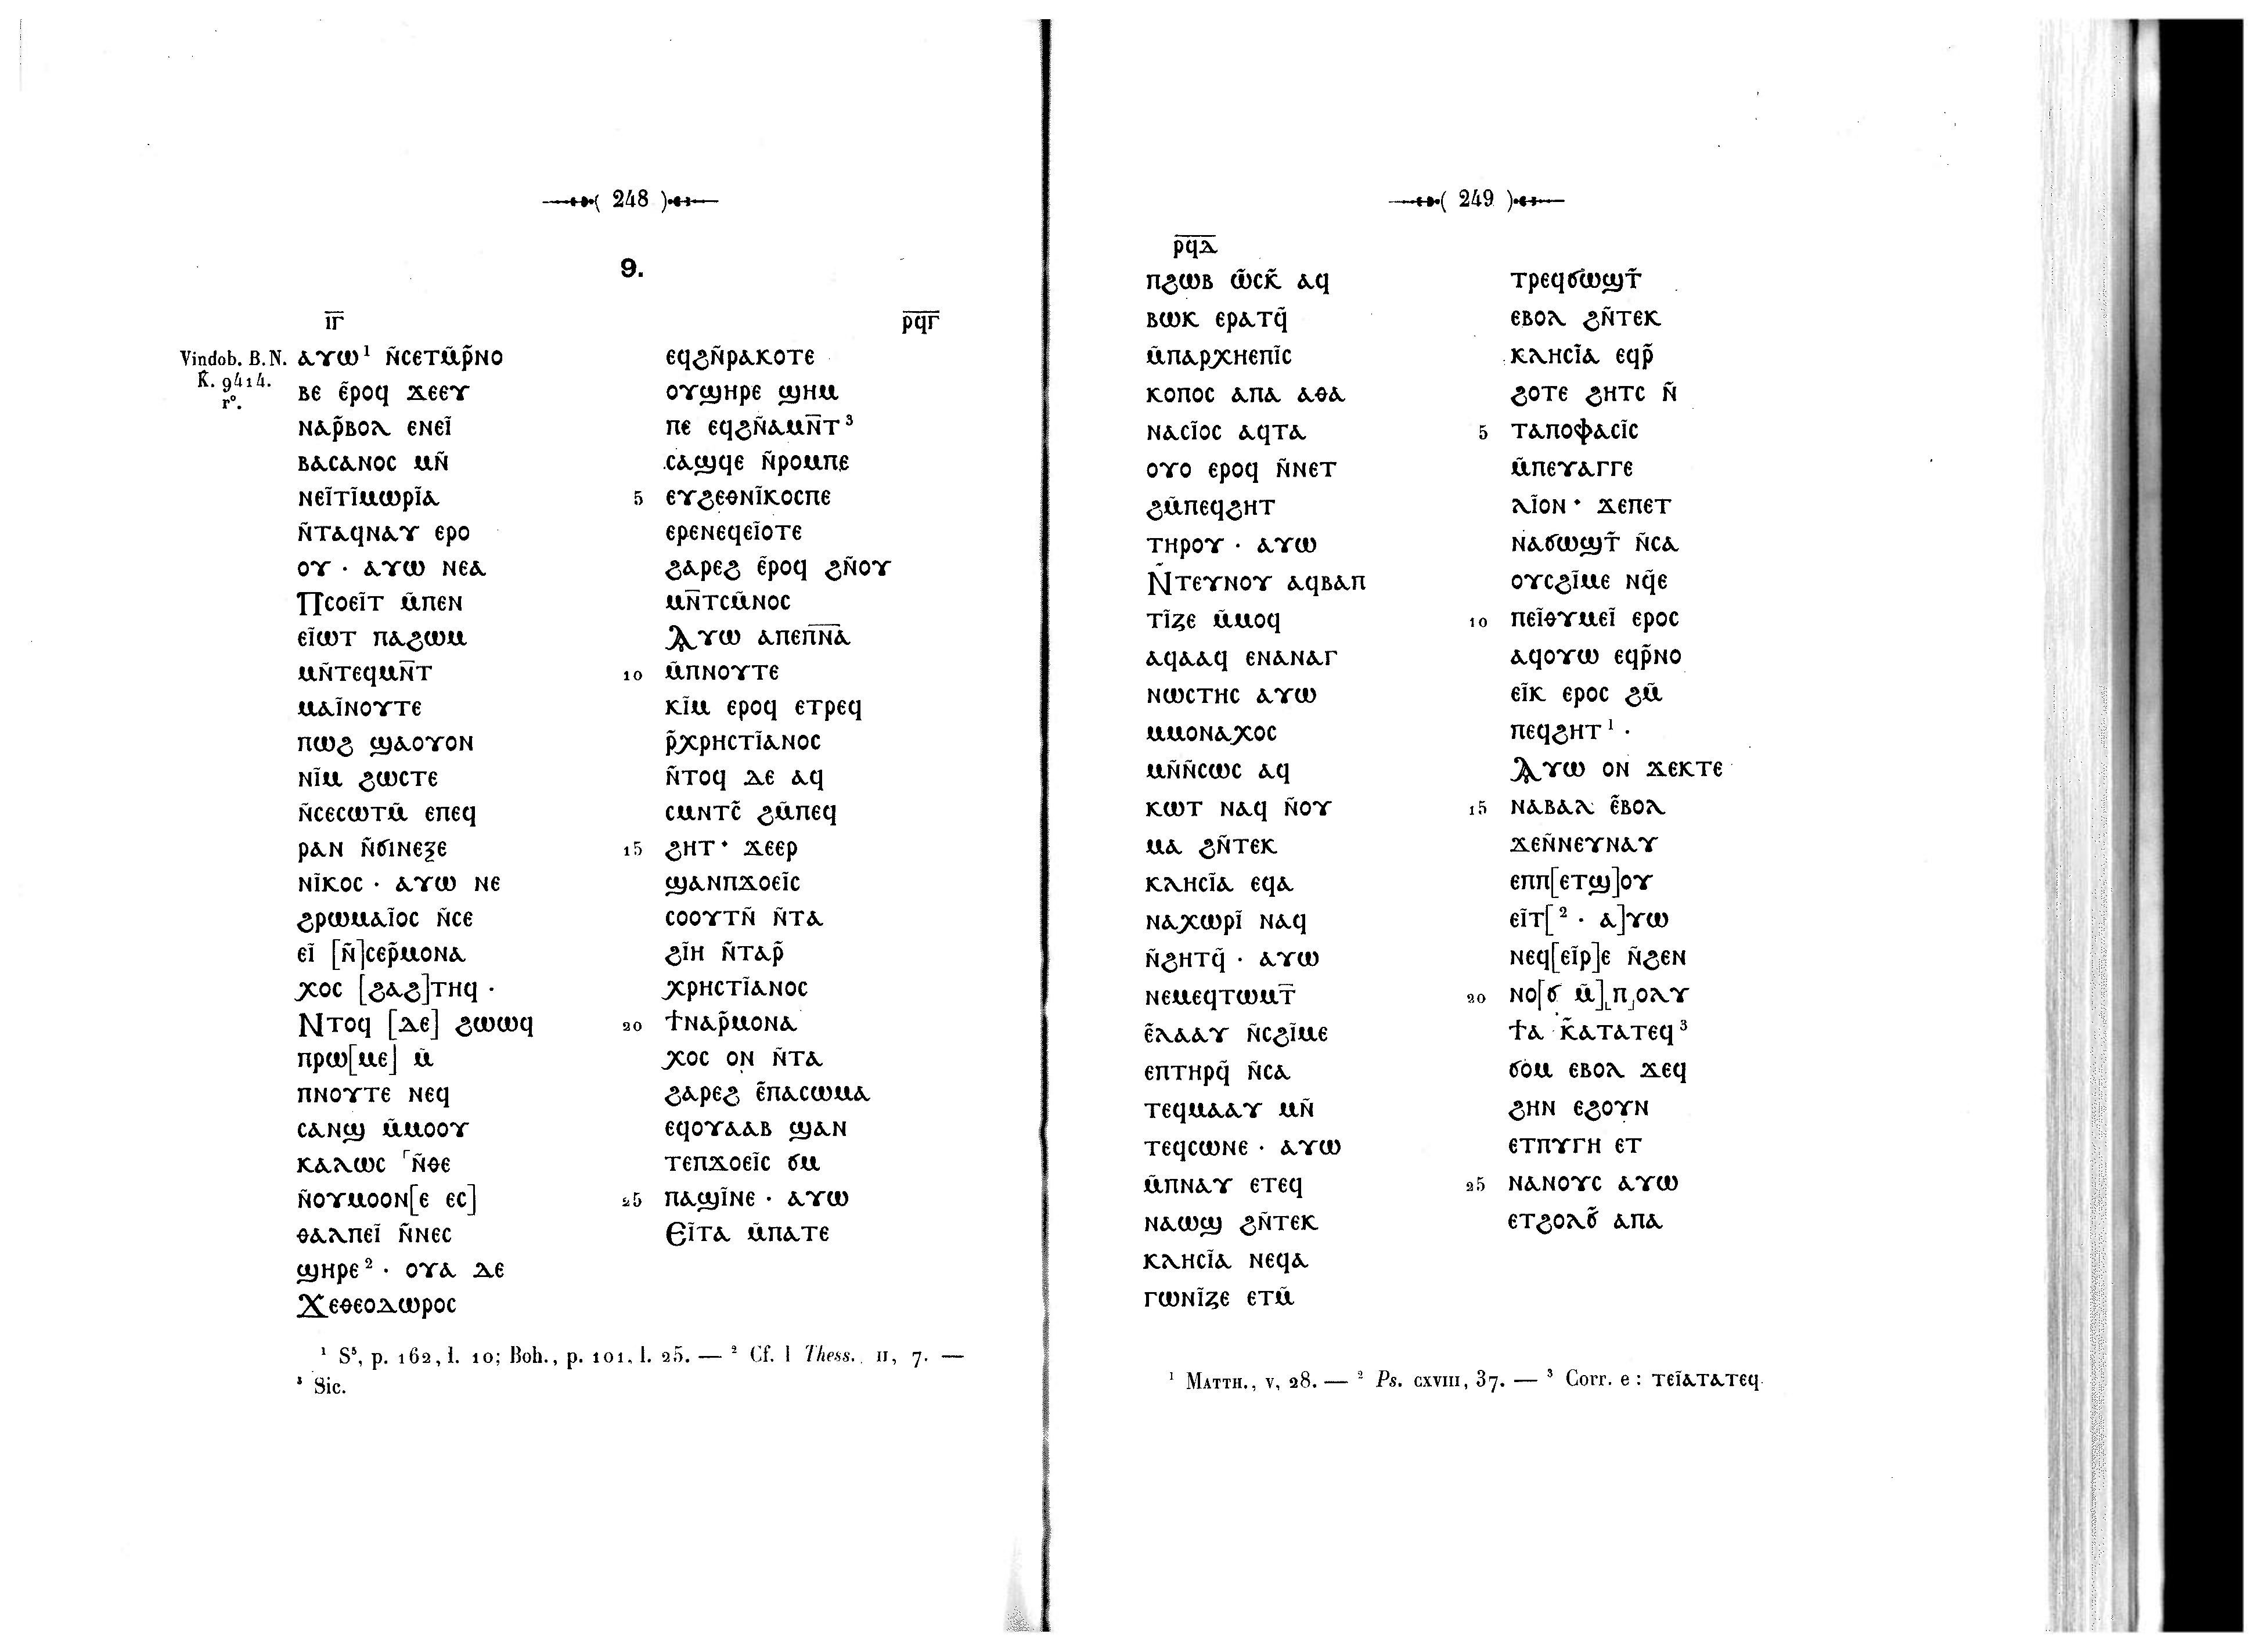 248
9.
ⲓ̅ⲅ̅ ⲣ̅ϥ̅ⲅ̅
Vindob. B.N.
K. 9414.
r°.
ⲁⲩⲱ¹ ⲛ̄ⲥⲉⲧⲙ̄ⲣ̄ⲛⲟ
ⲃⲉ ⲉ̄ⲣⲟϥ ϫⲉⲉⲩ
ⲛⲁⲣ̄ⲃⲟⲗ ⲉⲛⲉⲓ̈
ⲃⲁⲥⲁⲛⲟⲥ ⲙⲛ̄
ⲛⲉⲓ̈ⲧⲓ̈ⲙⲱⲣⲓ̈ⲁ
ⲛ̄ⲧⲁϥⲛⲁⲩ ⲉⲣⲟ
ⲟⲩ · ⲁⲩⲱ ⲛⲉⲁ
Ⲡⲥⲟⲉⲓ̈ⲧ ⲙ̄ⲡⲉⲛ
ⲉⲓ̈ⲱⲧ ⲡⲁϩⲱⲙ
ⲙⲛ̄ⲧⲉϥⲙⲛ̅ⲧ
ⲙⲁⲓ̈ⲛⲟⲩⲧⲉ
ⲡⲱϩ ϣⲁⲟⲩⲟⲛ
ⲛⲓ̈ⲙ ϩⲱⲥⲧⲉ
ⲛ̄ⲥⲉⲥⲱⲧⲙ̄ ⲉⲡⲉϥ
ⲣⲁⲛ ⲛ̄ϭⲓⲛⲉⲝⲉ
ⲛⲓ̈ⲕⲟⲥ · ⲁⲩⲱ ⲛⲉ
ϩⲣⲱⲙⲁⲓ̈ⲟⲥ ⲛ̄ⲥⲉ
ⲉⲓ̈ [ⲛ̄]ⲥⲉⲣ̄ⲙⲟⲛⲁ
ⲭⲟⲥ [ϩⲁϩ]ⲧⲏϥ ·
Ⲛⲧⲟϥ [ⲇⲉ] ϩⲱⲱϥ
ⲡⲣⲱ[ⲙⲉ] ⲙ̄
ⲡⲛⲟⲩⲧⲉ ⲛⲉϥ
ⲥⲁⲛϣ ⲙ̄ⲙⲟⲟⲩ
ⲕⲁⲗⲱⲥ ⸢ⲛ̄ⲑⲉ
ⲛ̄ⲟⲩⲙⲟⲟⲛ[ⲉ ⲉⲥ]
ⲑⲁⲗⲡⲉⲓ̈ ⲛ̄ⲛⲉⲥ
ϣⲏⲣⲉ² · ⲟⲩⲁ ⲇⲉ
Ϫⲉⲑⲉⲟⲇⲱⲣⲟⲥ
ⲉϥϩⲛ̄ⲣⲁⲕⲟⲧⲉ
ⲟⲩϣⲏⲣⲉ ϣⲏⲙ
ⲡⲉ ⲉϥϩⲛ̄ⲁⲙⲛ̅ⲧ³
ⲥⲁϣϥⲉ ⲛ̄ⲣⲟⲙⲡⲉ
5 ⲉⲩϩⲉⲑⲛⲓ̈ⲕⲟⲥⲡⲉ
ⲉⲣⲉⲛⲉϥⲉⲓ̈ⲟⲧⲉ
ϩⲁⲣⲉϩ ⲉ̄ⲣⲟϥ ϩⲛ̄ⲟⲩ
ⲙⲛ̅ⲧⲥⲙ̄ⲛⲟⲥ
Ⲁⲩⲱ ⲁⲡⲉⲡ̅ⲛ̅ⲁ̅
10 ⲙ̄ⲡⲛⲟⲩⲧⲉ
ⲕⲓ̈ⲙ ⲉⲣⲟϥ ⲉⲧⲣⲉϥ
ⲣ̄ⲭⲣⲏⲥⲧⲓ̈ⲁⲛⲟⲥ
ⲛ̄ⲧⲟϥ ⲇⲉ ⲁϥ
ⲥⲙⲛⲧⲥ̄ ϩⲙ̄ⲡⲉϥ
15 ϩⲏⲧ · ϫⲉⲉⲣ
ϣⲁⲛⲡϫⲟⲉⲓ̈ⲥ
ⲥⲟⲟⲩⲧⲛ̄ ⲛ̄ⲧⲁ
ϩⲓ̈ⲏ ⲛ̄ⲧⲁⲣ̄
ⲭⲣⲏⲥⲧⲓ̈ⲁⲛⲟⲥ
20 ϯⲛⲁⲣ̄ⲙⲟⲛⲁ
ⲭⲟⲥ ⲟⲛ ⲛ̄ⲧⲁ
ϩⲁⲣⲉϩ ⲉ̄ⲡⲁⲥⲱⲙⲁ
ⲉϥⲟⲩⲁⲁⲃ ϣⲁⲛ
ⲧⲉⲡϫⲟⲉⲓ̈ⲥ ϭⲙ
25 ⲡⲁϣⲓ̈ⲛⲉ · ⲁⲩⲱ
Ⲉⲓ̈ⲧⲁ ⲙ̄ⲡⲁⲧⲉ
¹ S⁵, p. 162, l. 10; Boh., p. 101, l. 25. — ² Cf. I Thess., II, 7. —
³ Sic.
249
ⲣ̅ϥ̅ⲇ̅
ⲡϩⲱⲃ ⲱ̄ⲥⲕ̄ ⲁϥ
ⲃⲱⲕ ⲉⲣⲁⲧϥ̄
ⲙ̄ⲡⲁⲣⲭⲏⲉⲡⲓ̈ⲥ
ⲕⲟⲡⲟⲥ ⲁⲡⲁ ⲁⲑⲁ
ⲛⲁⲥⲓ̈ⲟⲥ ⲁϥⲧⲁ
ⲟⲩⲟ ⲉⲣⲟϥ ⲛ̄ⲛⲉⲧ
ϩⲙ̄ⲡⲉϥϩⲏⲧ
ⲧⲏⲣⲟⲩ · ⲁⲩⲱ
Ⲛ̄ⲧⲉⲩⲛⲟⲩ ⲁϥⲃⲁⲡ
ⲧⲓ̈ⲍⲉ ⲙ̄ⲙⲟϥ
ⲁϥⲁⲁϥ ⲉⲛⲁⲛⲁⲅ
ⲛⲱⲥⲧⲏⲥ ⲁⲩⲱ
ⲙⲙⲟⲛⲁⲭⲟⲥ
ⲙⲛ̄ⲛ̄ⲥⲱⲥ ⲁϥ
ⲕⲱⲧ ⲛⲁϥ ⲛ̄ⲟⲩ
ⲙⲁ ϩⲛ̄ⲧⲉⲕ
ⲕⲗⲏⲥⲓ̈ⲁ ⲉϥⲁ
ⲛⲁⲭⲱⲣⲓ̈ ⲛⲁϥ
ⲛ̄ϩⲏⲧϥ̄ · ⲁⲩⲱ
ⲛⲉⲙⲉϥⲧⲱⲙⲧ̅
ⲉ̄ⲗⲁⲁⲩ ⲛ̄ⲥϩⲓ̈ⲙⲉ
ⲉⲡⲧⲏⲣϥ̄ ⲛ̄ⲥⲁ
ⲧⲉϥⲙⲁⲁⲩ ⲙⲛ̄
ⲧⲉϥⲥⲱⲛⲉ · ⲁⲩⲱ
ⲙ̄ⲡⲛⲁⲩ ⲉⲧⲉϥ
ⲛⲁⲱϣ ϩⲛ̄ⲧⲉⲕ
ⲕⲗⲏⲥⲓ̈ⲁ ⲛⲉϥⲁ
ⲅⲱⲛⲓ̈ⲍⲉ ⲉⲧⲙ̄
ⲧⲣⲉϥϭⲱϣⲧ̄
ⲉⲃⲟⲗ ϩⲛ̄ⲧⲉⲕ
ⲕⲗⲏⲥⲓ̈ⲁ ⲉϥⲣ̄
ϩⲟⲧⲉ ϩⲏⲧⲥ ⲛ̄
5 ⲧⲁⲡⲟⲫⲁⲥⲓ̈ⲥ
ⲙ̄ⲡⲉⲩⲁⲅⲅⲉ
ⲗⲓ̈ⲟⲛ · ϫⲉⲡⲉⲧ
ⲛⲁϭⲱϣⲧ̄ ⲛ̄ⲥⲁ
ⲟⲩⲥϩⲓ̈ⲙⲉ ⲛϥ̄ⲉ
10 ⲡⲉⲓ̈ⲑⲩⲙⲉⲓ̈ ⲉⲣⲟⲥ
ⲁϥⲟⲩⲱ ⲉϥⲣ̄ⲛⲟ
ⲉⲓ̈ⲕ ⲉⲣⲟⲥ ϩⲙ̄
ⲡⲉϥϩⲏⲧ¹ ·
Ⲁⲩⲱ ⲟⲛ ϫⲉⲕⲧⲉ
15 ⲛⲁⲃⲁⲗ ⲉ̄ⲃⲟⲗ
ϫⲉⲛ̄ⲛⲉⲩⲛⲁⲩ
ⲉⲡⲡ[ⲉⲧϣ]ⲟⲩ
ⲉⲓ̈ⲧ[² · ⲁ]ⲩⲱ
ⲛⲉϥ[ⲉⲓ̈ⲣ]ⲉ ⲛ̄ϩⲉⲛ
20 ⲛⲟ[ϭ ⲙ̄]⸤ⲡ⸥ⲟⲗⲩ
ϯⲁ ⲕ̄ⲁⲧⲁⲧⲉϥ³
ϭⲟⲙ ⲉⲃⲟⲗ ϫⲉϥ
ϩⲏⲛ ⲉϩⲟⲩⲛ
ⲉⲧⲡⲩⲅⲏ ⲉⲧ
25 ⲛⲁⲛⲟⲩⲥ ⲁⲩⲱ
ⲉⲧϩⲟⲗϭ̄ ⲁⲡⲁ
¹ MATTH., V, 28. — ² Ps. CXVIII, 37. — ³ Corr. e : ⲧⲉⲓ̈ⲁⲧⲁⲧⲉϥ